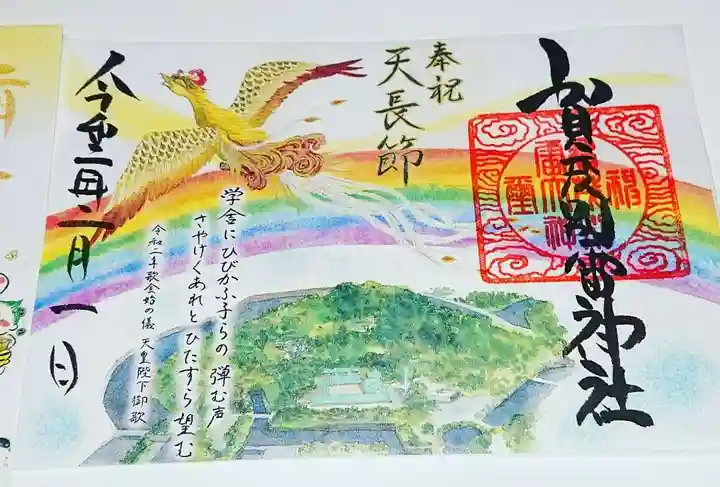 賀茂別雷神社
奉祝
天長節
学舎にひびかふ子らの弾む声
さやけくあれとひたすら望む
令和二年歌会始の儀 天皇陛下御歌
二月一日